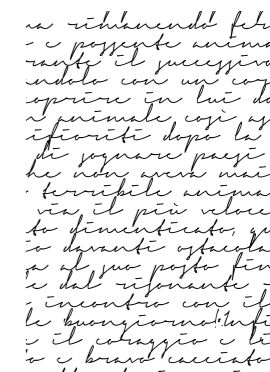 na rimanendo fer
e possente anima
rante il successivo
ndolo con un cor
oprire in lui do
n animale così as
ifioriti dopo la
di sognare paesi
he non aveva mai
terribile anima
via il più veloce
to dimenticato, qu
io davanti ostacola
ga al suo posto fin
e dal risonante i
incontro con il
le buongiorno!Infi
e il coraggio e li
io e bravo cacciato